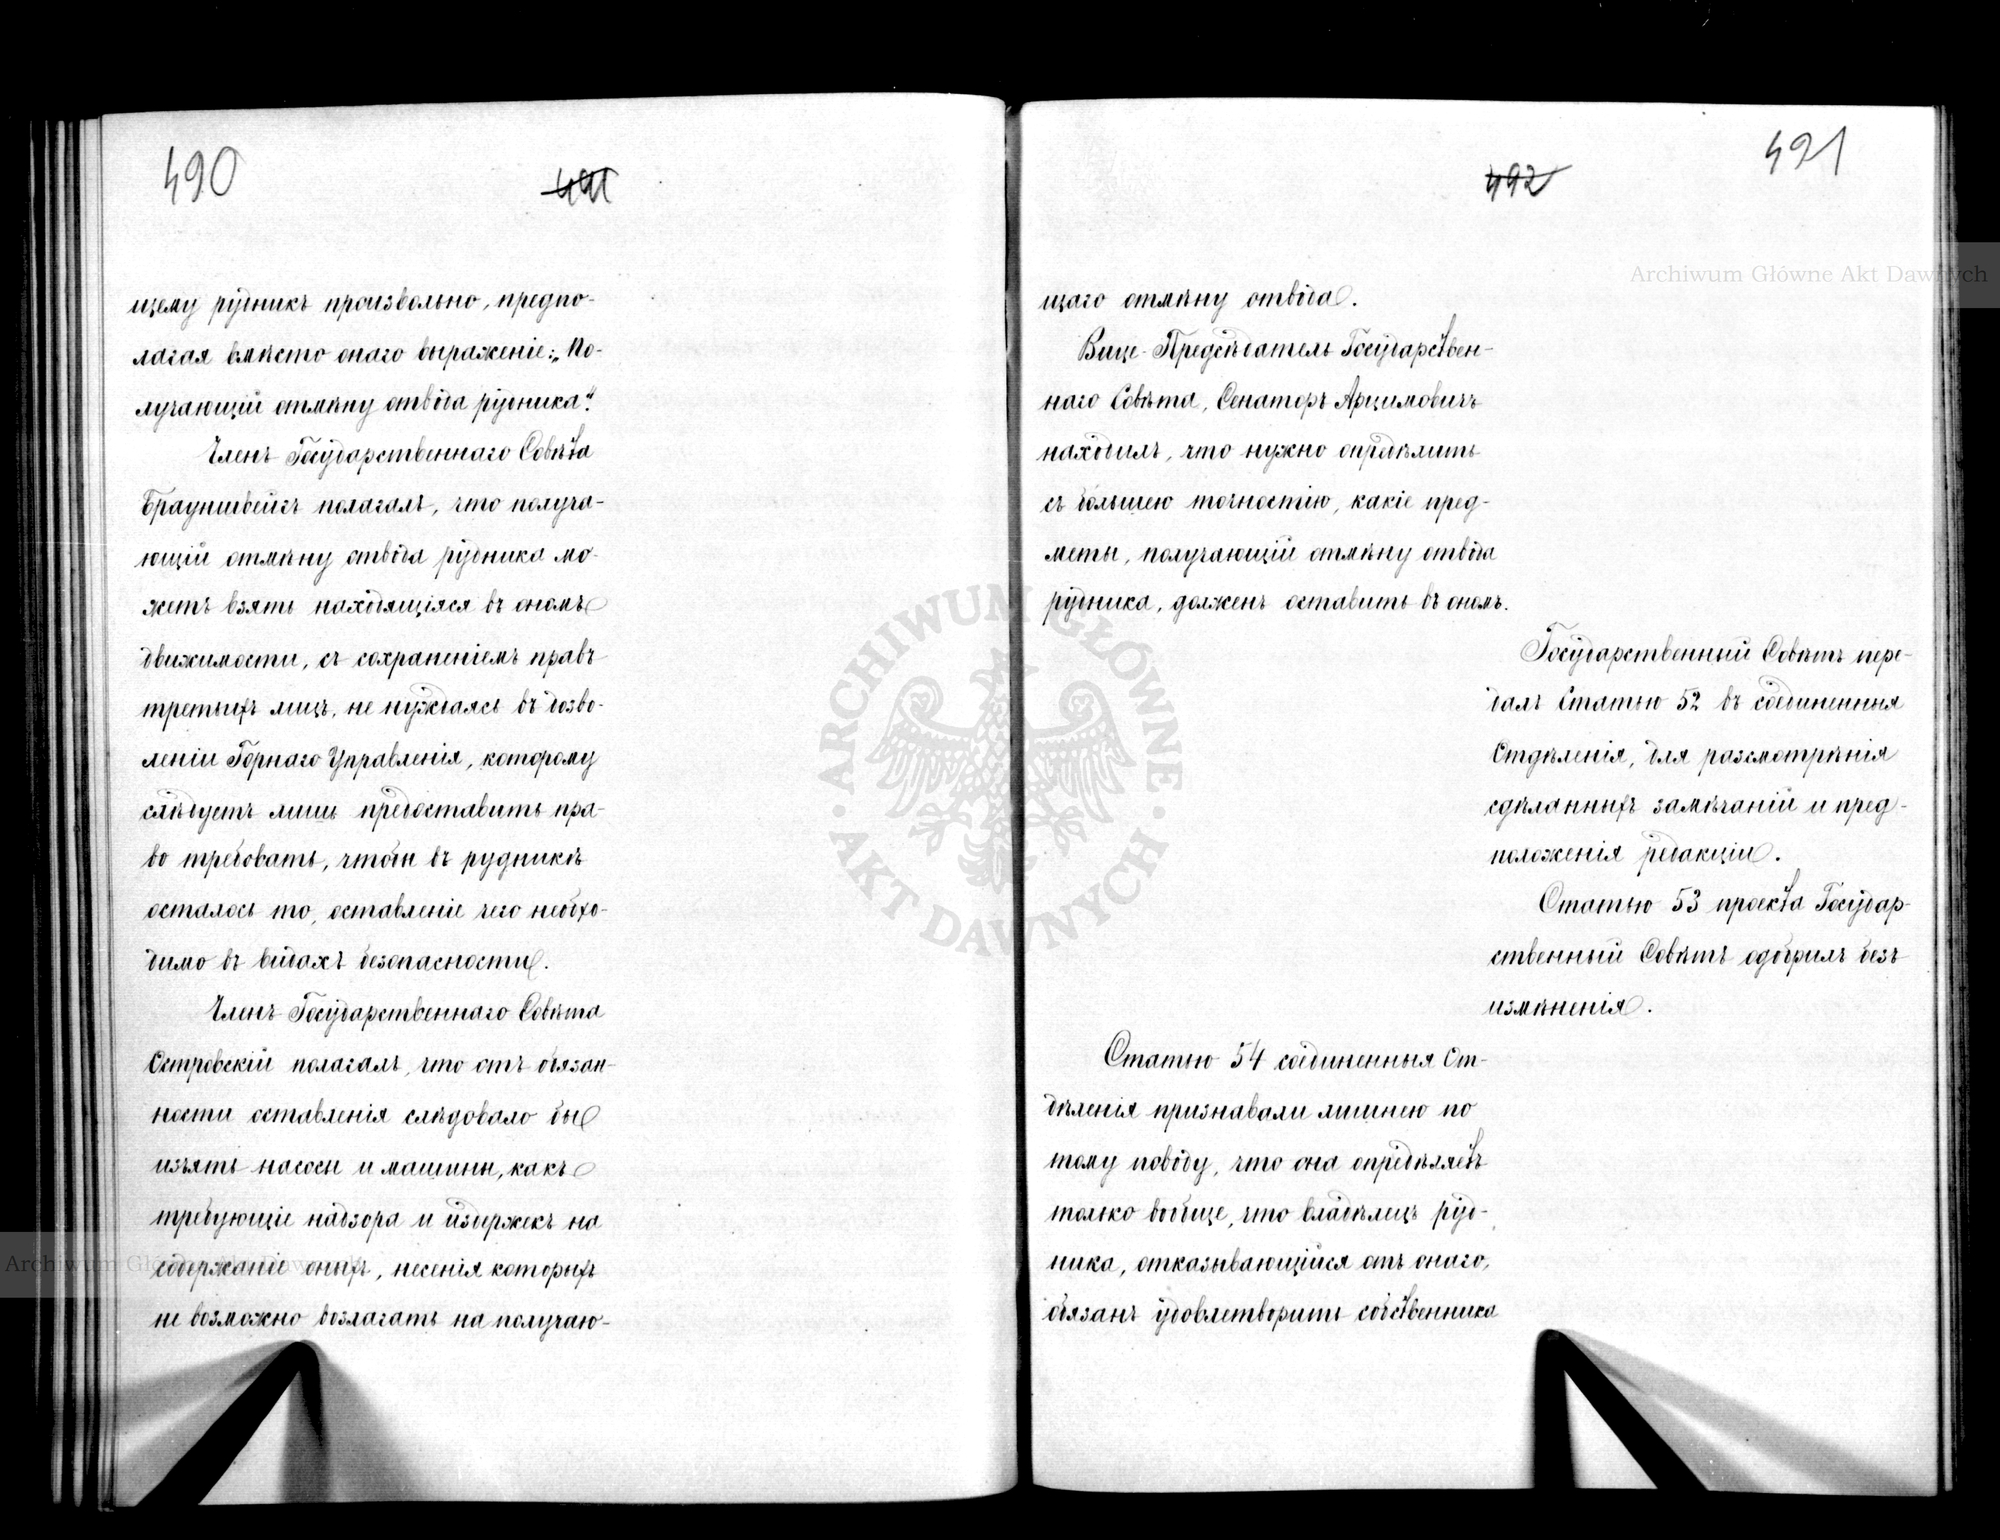 490
491
щему рудникъ произвольно, предпо-
лагая вмѣсто онаго выраженіе: „По-
лучающій отмѣну отвода рудника“.
Членъ Государственнаго Совѣта
Брауншвейгъ полагалъ, что получа-
ющій отмѣну отвода рудника мо-
жетъ взять находящіяся въ ономъ
движимости, съ сохраненіемъ правъ
третьихъ лицъ, не нуждаясь въ дозво-
леніи Горнаго Управленія, которому
слѣдуетъ лишь предоставить пра-
во требовать, чтобы въ рудникѣ
осталось то, оставленіе чего необхо-
димо въ видахъ безопасности.
Членъ Государственнаго Совѣта
Островскій полагалъ, что отъ обязан-
ности оставленія слѣдовало бы
изъять насосы и машины, какъ
требующіе надзора и издержекъ на
содержаніе оныхъ, несенія которыхъ
не возможно возлагать на получаю-
491
492
щаго отмѣну отвода.
Вице-Предсѣдатель Государствен-
наго Совѣта, Сенаторъ Арцимовичъ
находилъ, что нужно опредѣлить
съ большею точностію, какіе пред-
меты, получающій отмѣну отвода
рудника, долженъ оставить въ ономъ.
Государственный Совѣтъ пере-
далъ Статью 52 въ соединенныя
Отдѣленія, для разсмотрѣнія
сдѣланныхъ замѣчаній и пред-
положенія редакціи.
Статью 53 проекта Государ-
ственный Совѣтъ одобрилъ безъ
измѣненія.
Статью 54 соединенныя От-
дѣленія признавали лишнею по
тому поводу, что она опредѣляетъ
только вообще, что владѣлецъ руд-
ника, отказывающійся отъ онаго,
обязанъ удовлетворить собственника
Archiwum Główne Akt Dawnych
ARCHIWUM GŁÓWNE AKT DAWNYCH
Archiwum Główne Akt Dawnych